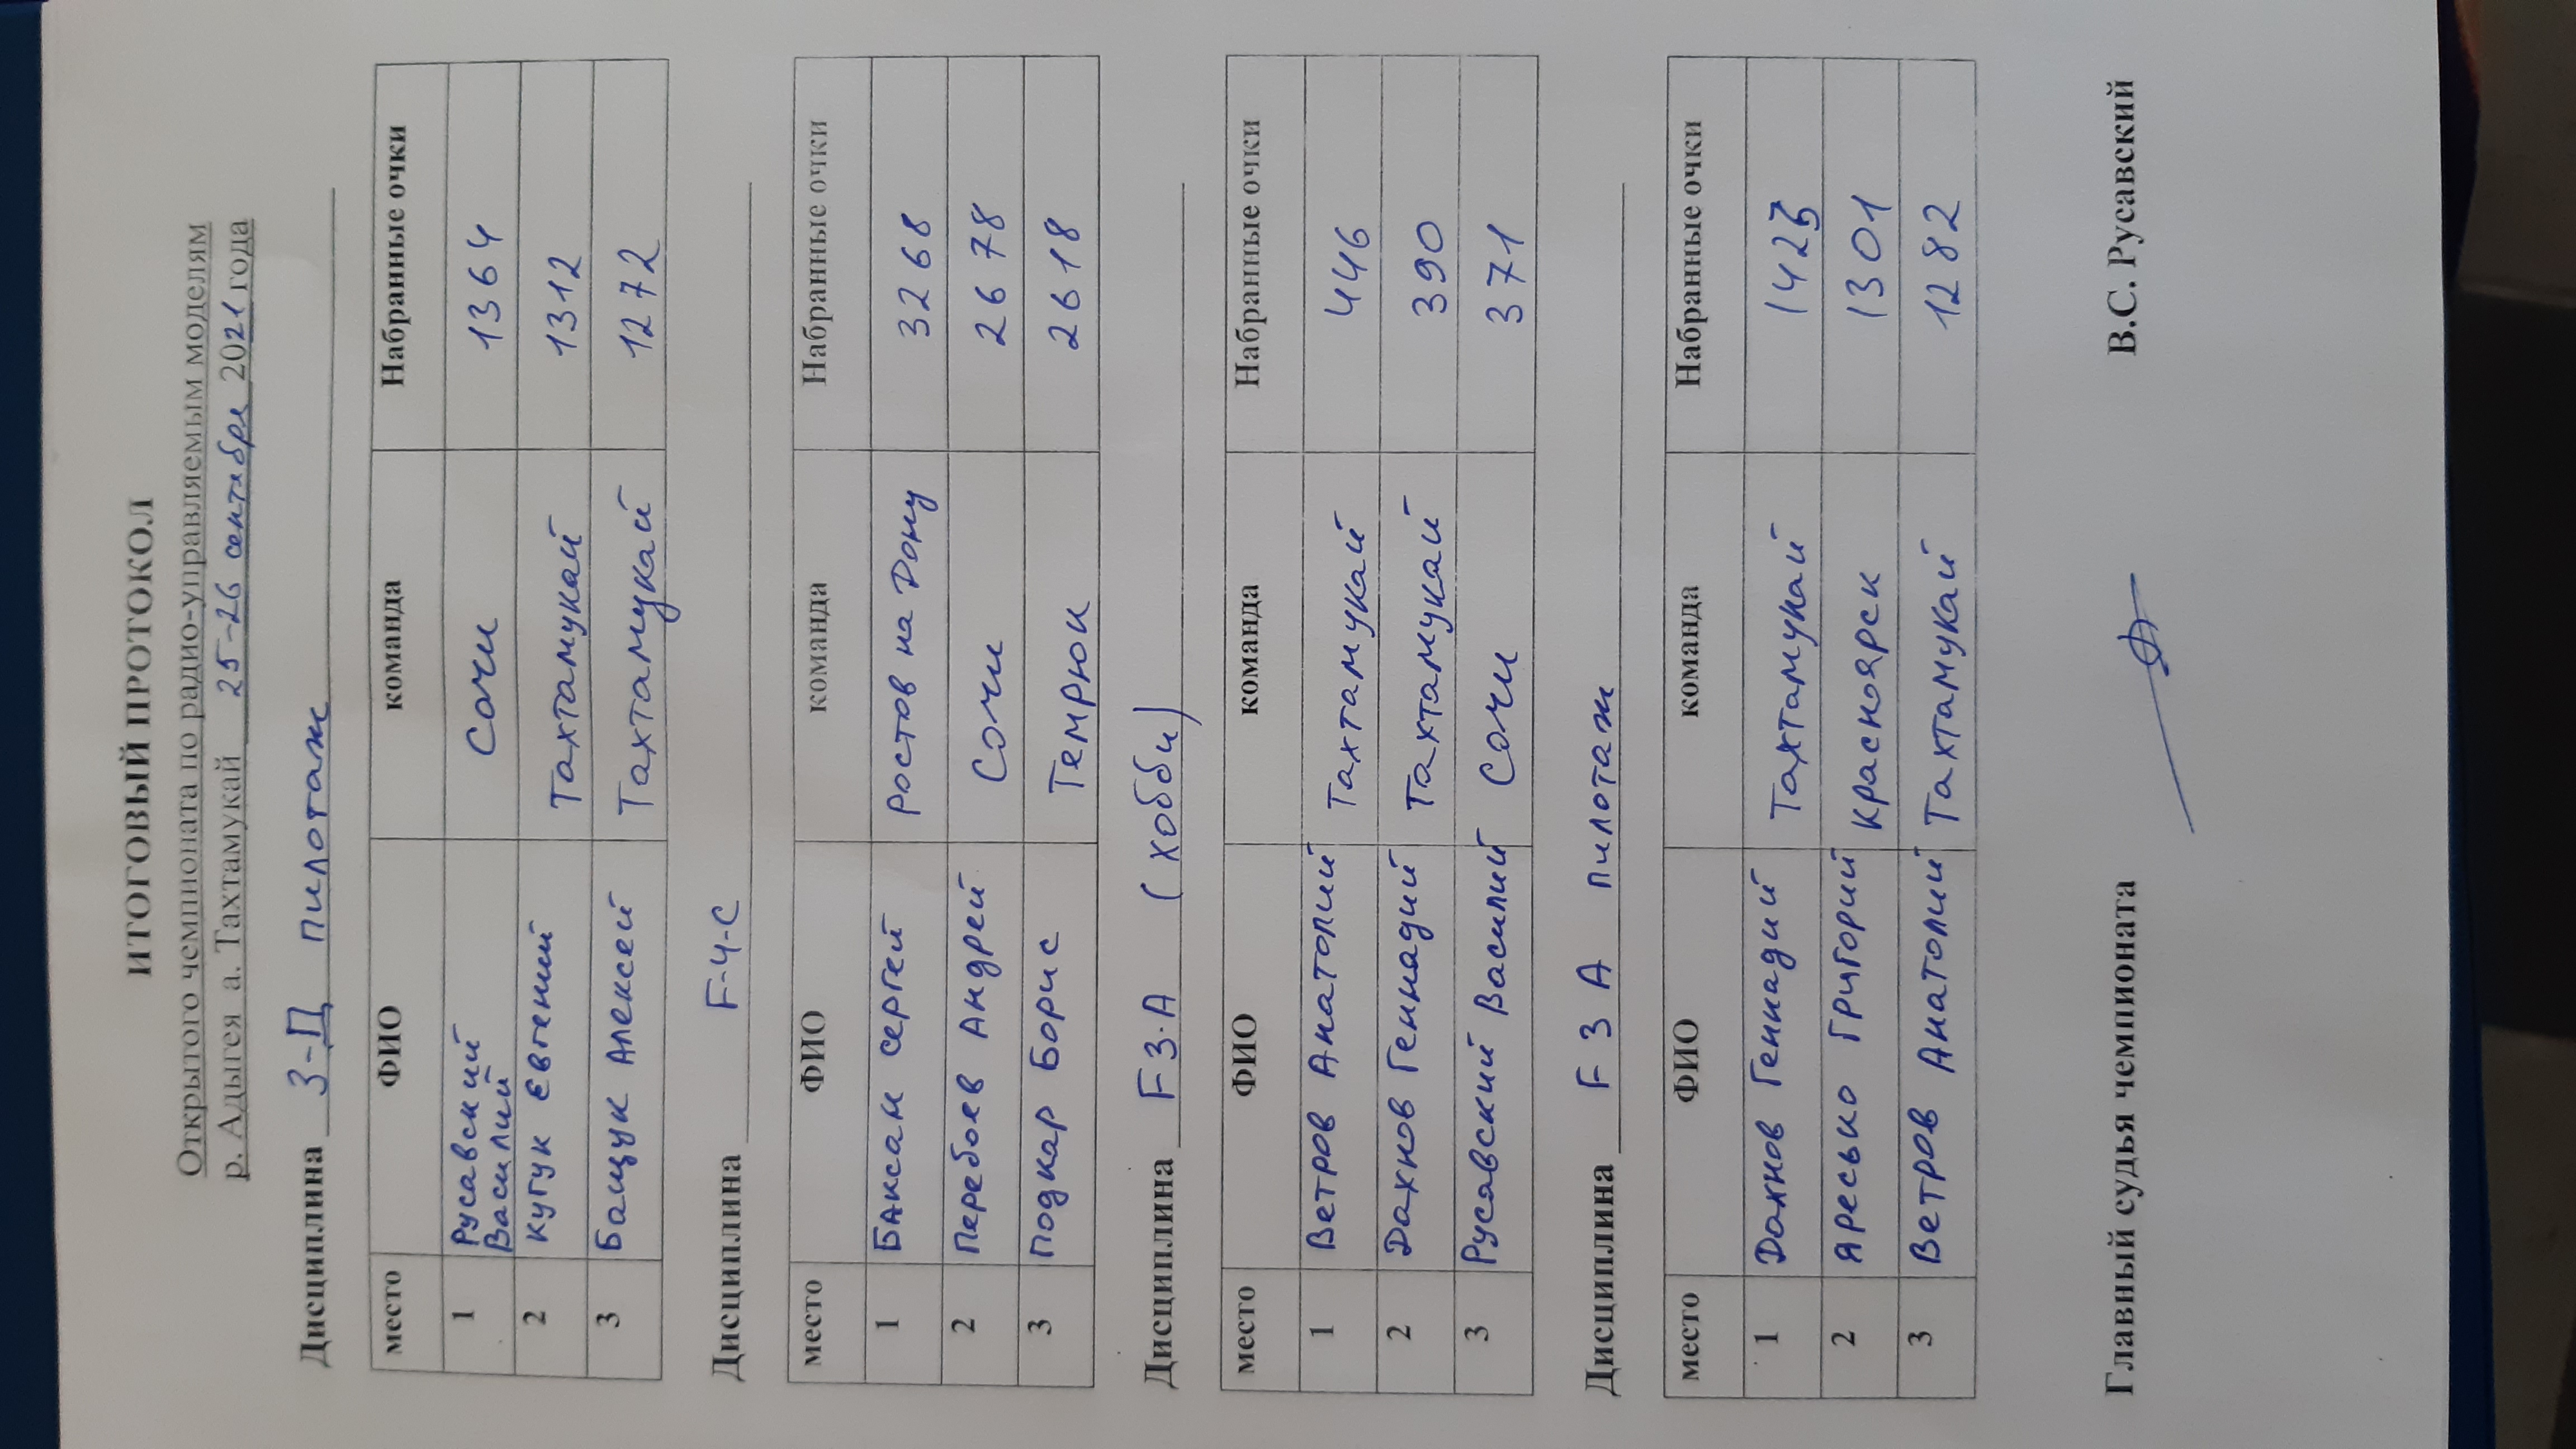 ИТОГОВЫЙ ПРОТОКОЛ
Открытого чемпионата по радио-управляемым моделям
р. Адыгея а. Тахтамукай 25-26 сентября 2021 года
Дисциплина 3-Д пилотаж
место ФИО команда Набранные очки
1 Русавский Василий Сочи 1364
2 Кугук Евгений Тахтамукай 1312
3 Бащук Алексей Тахтамукай 1272
Дисциплина F-4-C
место ФИО команда Набранные очки
1 Баксан Сергей Ростов на Дону 3268
2 Перебоев Андрей Сочи 2678
3 Подкар Борис Темрюк 2618
Дисциплина F3-A (хобби)
место ФИО команда Набранные очки
1 Ветров Анатолий Тахтамукай 446
2 Дахнов Геннадий Тахтамукай 390
3 Русавский Василий Сочи 371
Дисциплина F 3 A пилотаж
место ФИО команда Набранные очки
1 Дахнов Геннадий Тахтамукай
2 Яресько Григорий Красноярск 1301
3 Ветров Анатолий Тахтамукай 1282
Главный судья чемпионата В.С. Русавский